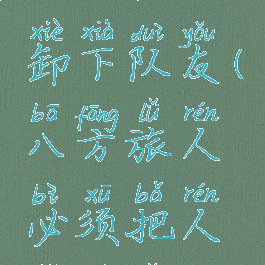 xiè xià duì yǒu
卸下队友(
bā fāng lǚ rén
八方旅人
bì xū bǎ rén
必须把人